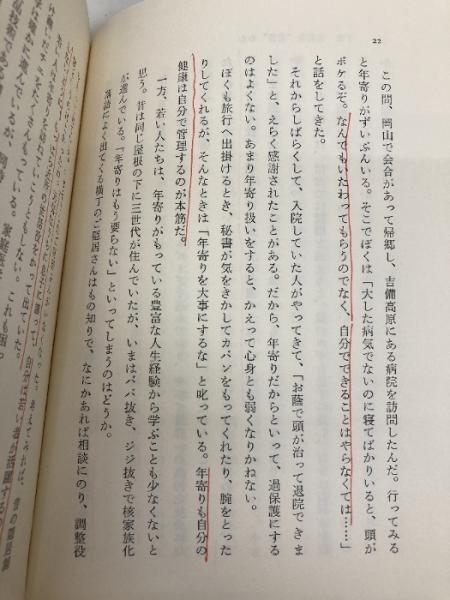 22
この間、岡山で会合があって帰郷し、吉備高原にある病院を訪問したんだ。行ってみる
と年寄りがずいぶんいる。そこでぼくは「大した病気でないのに寝てばかりいると、頭が
ボケるぞ。なんでもいたわってもらうのでなく、自分でできることはやらなくては……」
と話をしてきた。
それからしばらくして、入院していた人がやってきて、「お蔭で頭が治って退院できま
した」と、えらく感謝されたことがある。だから、年寄りだからといって、過保護にする
のはよくない。あまり年寄り扱いをすると、かえって心身とも弱くなりかねない。
ぼくも旅行へ出掛けるとき、秘書が気をきかしてカバンをもってくれたり、腕をとった
りしてくれるが、そんなときは「年寄りを大事にするな」と叱っている。年寄りも自分の
健康は自分で管理するのが本筋だ。
一方、若い人たちは、年寄りがもっている豊富な人生経験から学ぶことも少なくないと
思う。昔は同じ屋根の下に三世代が住んでいたが、いまはババ抜き、ジジ抜きで核家族化
が進んでいる。「年寄りはもう要らない」といってしまうのはどうか。
落語によく出てくる横丁のご隠居さんはもの知りで、なにかあれば相談にのり、調整役